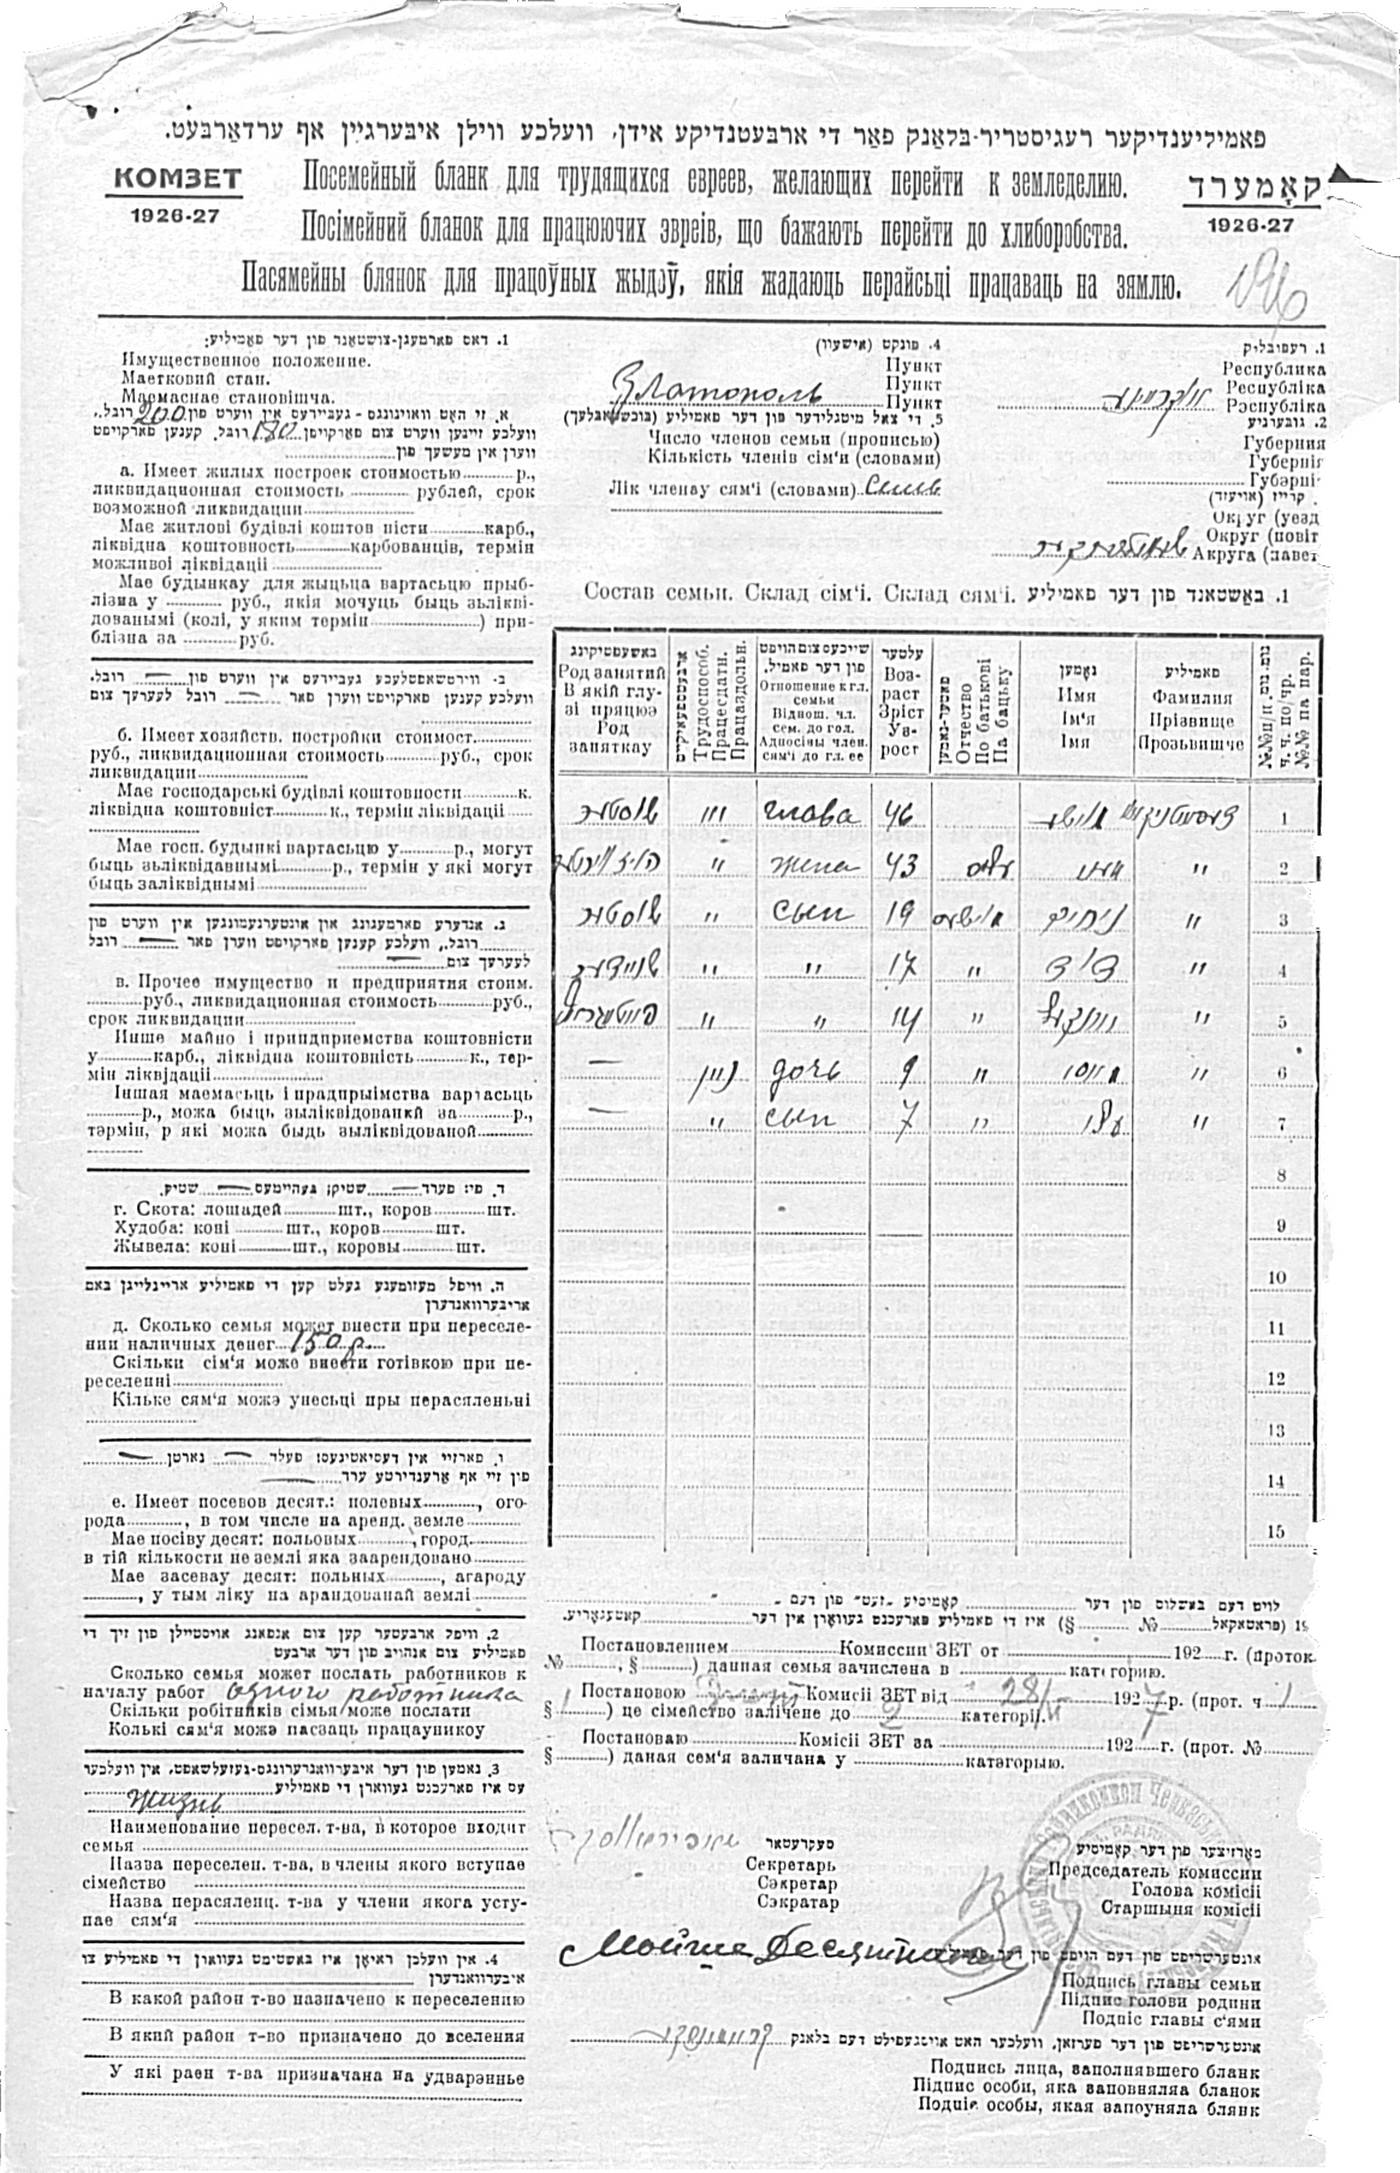 פאמיליענדיקער רעגיסטריר-בלאַנק פאַר די ארבעטנדיקע אידן, וועלכע ווילן איבערגיין אף ערדאַרבעט.
КОМЗЕТ
1926-27
Посемейный бланк для трудящихся евреев, желающих перейти к земледелию.
Посімейний бланок для працюючих эвреів, що бажають перейти до хлиборобства.
Пасямейны блянок для працоўных жыдоў, якія жадаюць перайсьці працаваць на зямлю.
קאָמערד
1926-27
1. רעפובליק
Республика
Республіка
Рэспубліка
2. גובערניע
Губерния
Губернія
Губэрні
קרייז (אויעזד)
Округ (уезд
Округ (повіт
Акруга (павет
4. פונקט (אישעוו)
Пункт
Пункт
Пункт
Златополь
5. די צאל מיטגלידער פון דער פאמיליע (בוכשטאבלעך)
Число членов семьи (прописью)
Кількість членів сім'и (словами)
Лік членау сям'і (словами) Семь
1. דאס פארמעגן-צושטאנד פון דער פאמיליע:
Имущественное положение.
Маетковий стан.
Маемаснае становішча.
א. זי האט וואוינונגס-געביידעס אין ווערט פון 200 רובל.,
וועלכע זיינען ווערט צום פארקויפן 180 רובל. קענען פארקויפט
ווערן אין משעך פון
а. Имеет жилых построек стоимостью р.,
ликвидационная стоимость рублей, срок
возможной ликвидации
Має житлові будівлі коштов ністи карб.,
ліквідна коштовность карбованців, термін
можливої ліквідаціі
Мае будынкау для жыцьца вартасьцю прыб-
лізна у руб., якія мочуць быць зьлікві-
дованымі (колі, у яким термін ) при-
блізна за руб.
ב. ווירטשאפטלעכע געביידעס אין ווערט פון — רובל.
וועלכע קענען פארקויפט ווערן פאר — רובל לערעך צום
б. Имеет хозяйств. постройки стоимост.
руб., ликвидационная стоимость руб., срок
ликвидации
Має господарські будівлі коштовности к.
ліквідна коштовніст к., термін ліквідаціі
Мае госп. будынкі вартасьцю у р., могут
быць зьліквідавнымі р., термін у які могут
быць заліквіднымі
ג. אנדערע פארמעגונג און אונטערנעמונגען אין ווערט פון
רובל., וועלכע קענען פארקויפט ווערן פאר — רובל
לעערעך צום —
в. Прочее имущество и предприятия стоим.
руб., ликвидационная стоимость руб.,
срок ликвидации
Инше майно і приндприємства коштовністи
у карб., ліквідна коштовність к., тер-
мін ліквідаціі
Іншая маемасьць і прадпрыімства вартасьць
р., можа быць зыліквідованкй за р.,
тэрмін, р які можа быдь зыліквідованой
ד. פי: פערד — שטיק; בעהיימעס — שטיק.
г. Скота: лошадей шт., коров шт.
Худоба: коні шт., коров шт.
Жывела: коні шт., коровы шт.
ה. וויפל מעזומענע געלט קען די פאמיליע אריינלייגן באם
אריבערוואנדערן
д. Сколько семья может внести при переселе-
нии наличных денег 150 р.
Скільки сім'я може внести готівкою при пе-
реселенні
Кільке сям'я можэ унесьці пры перасяленьні
ו. פארזיי אין דעסיאטינעס: פעלד — גארטן —
פון זיי אף ארענדירטע ערד —
е. Имеет посевов десят.: полевых , ого-
рода , в том числе на аренд. земле
Має посіву десят: польовых , город.
в тій кількости не землі яка заарендовано
Мае засевау десят: польных , агароду
, у тым ліку на арандованай землі
2. וויפל ארבעטער קען צום אנפאנג אויסטיילן פון זיך די
פאמיליע צום אנהויב פון דער ארבעט
Сколько семья может послать работников к
началу работ одного работника
Скільки робітників сімья може послати
Колькі сям'я можа пасзаць працауникоу
3. נאמען פון דער איבערוואנדערונגס-געזעלשאפט, אין וועלכער
עס איז פארעכנט געווארן די פאמיליע
Жизнь
Наименование пересел. т-ва, в которое входит
семья
Назва переселен. т-ва, в члены якого вступае
сімейство
Назва перасяленц. т-ва у члени якога усту-
пае сям'я
4. אין וועלכן ראיאן איז באשטימט געווארן די פאמיליע צו
איבערוואנדערן
В какой район т-во назначено к переселению
В який район т-во призначено до вселения
У які раен т-ва призначана на удварэннье
Состав семьи. Склад сім'і. Склад сям'і. 1. באשטאנד פון דער פאמיליע
באשעפטיקונג
Род занятий
В якій глу-
зі працюэ
Род
заняткау
ארבעטספעאיקייט
Трудоспособ.
Працесдатн.
Працаздольн.
שייכעס צום הויפט
פון דער פאמיל.
Отношение к гл.
семьи
Віднош. чл.
сем. до гол.
Адносіны член.
сям'і до гл. ее
עלטער
Воз-
раст
Зріст
Уз-
рост
פאטער-נאמען
Отчество
По батькові
Па бацьку
נאמען
Имя
Ім'я
Імя
פאמיליע
Фамилия
Прізвище
Прозьвишче
№№ п/п
ч. ч. по/чр.
№№ па пар.
שוסטער глава 46 מוישע 1
" жена 43 " 2
שוסטער " сын 19 מוישע נחום " 3
שניידער " " 17 " דוד " 4
" " 14 " יאנקל " 5
— ניין дочь 9 " " 6
— " сын 7 " " 7
8
9
10
11
12
13
14
15
לויט דעם באשלוס פון דער קאמיסיע "זעט" פון דעם
19 (פראטאקאל № §) איז די פאמיליע פארעכנט געווארן אין דער קאטעגאריע.
Постановлением Комиссии ЗЕТ от 192 г. (проток.
№ , § ) данная семья зачислена в катеrорию.
Постановою Комисіі ЗЕТ від 28/ 1927 р. (прот. ч 1
§ ) це сімейство залічене до 2 категоріі.
Постановаю Комісіі ЗЕТ за 192 г. (прот. №
§ ) даная сем'я заличана у катэгорыю.
סעקרעטאר
Секретарь
Сэкретар
Сэкратар
פארזיצער פון דער קאמיסיע
Председатель комиссии
Голова комісіі
Старшыня комісіі
Мойше Десятник
אונטערשריפט פון דעם הויפט פון דער פאמיליע
Подпись главы семьи
Підпис голови родини
Подпіс главы с'ями
אונטערשריפט פון דער פערזאן, וועלכער האט אויסגעפילט דעם בלאנק
Подпись лица, заполнявшего бланк
Підпис особи, яка заповняла бланок
Подпіс особы, якая запоуняла блянк